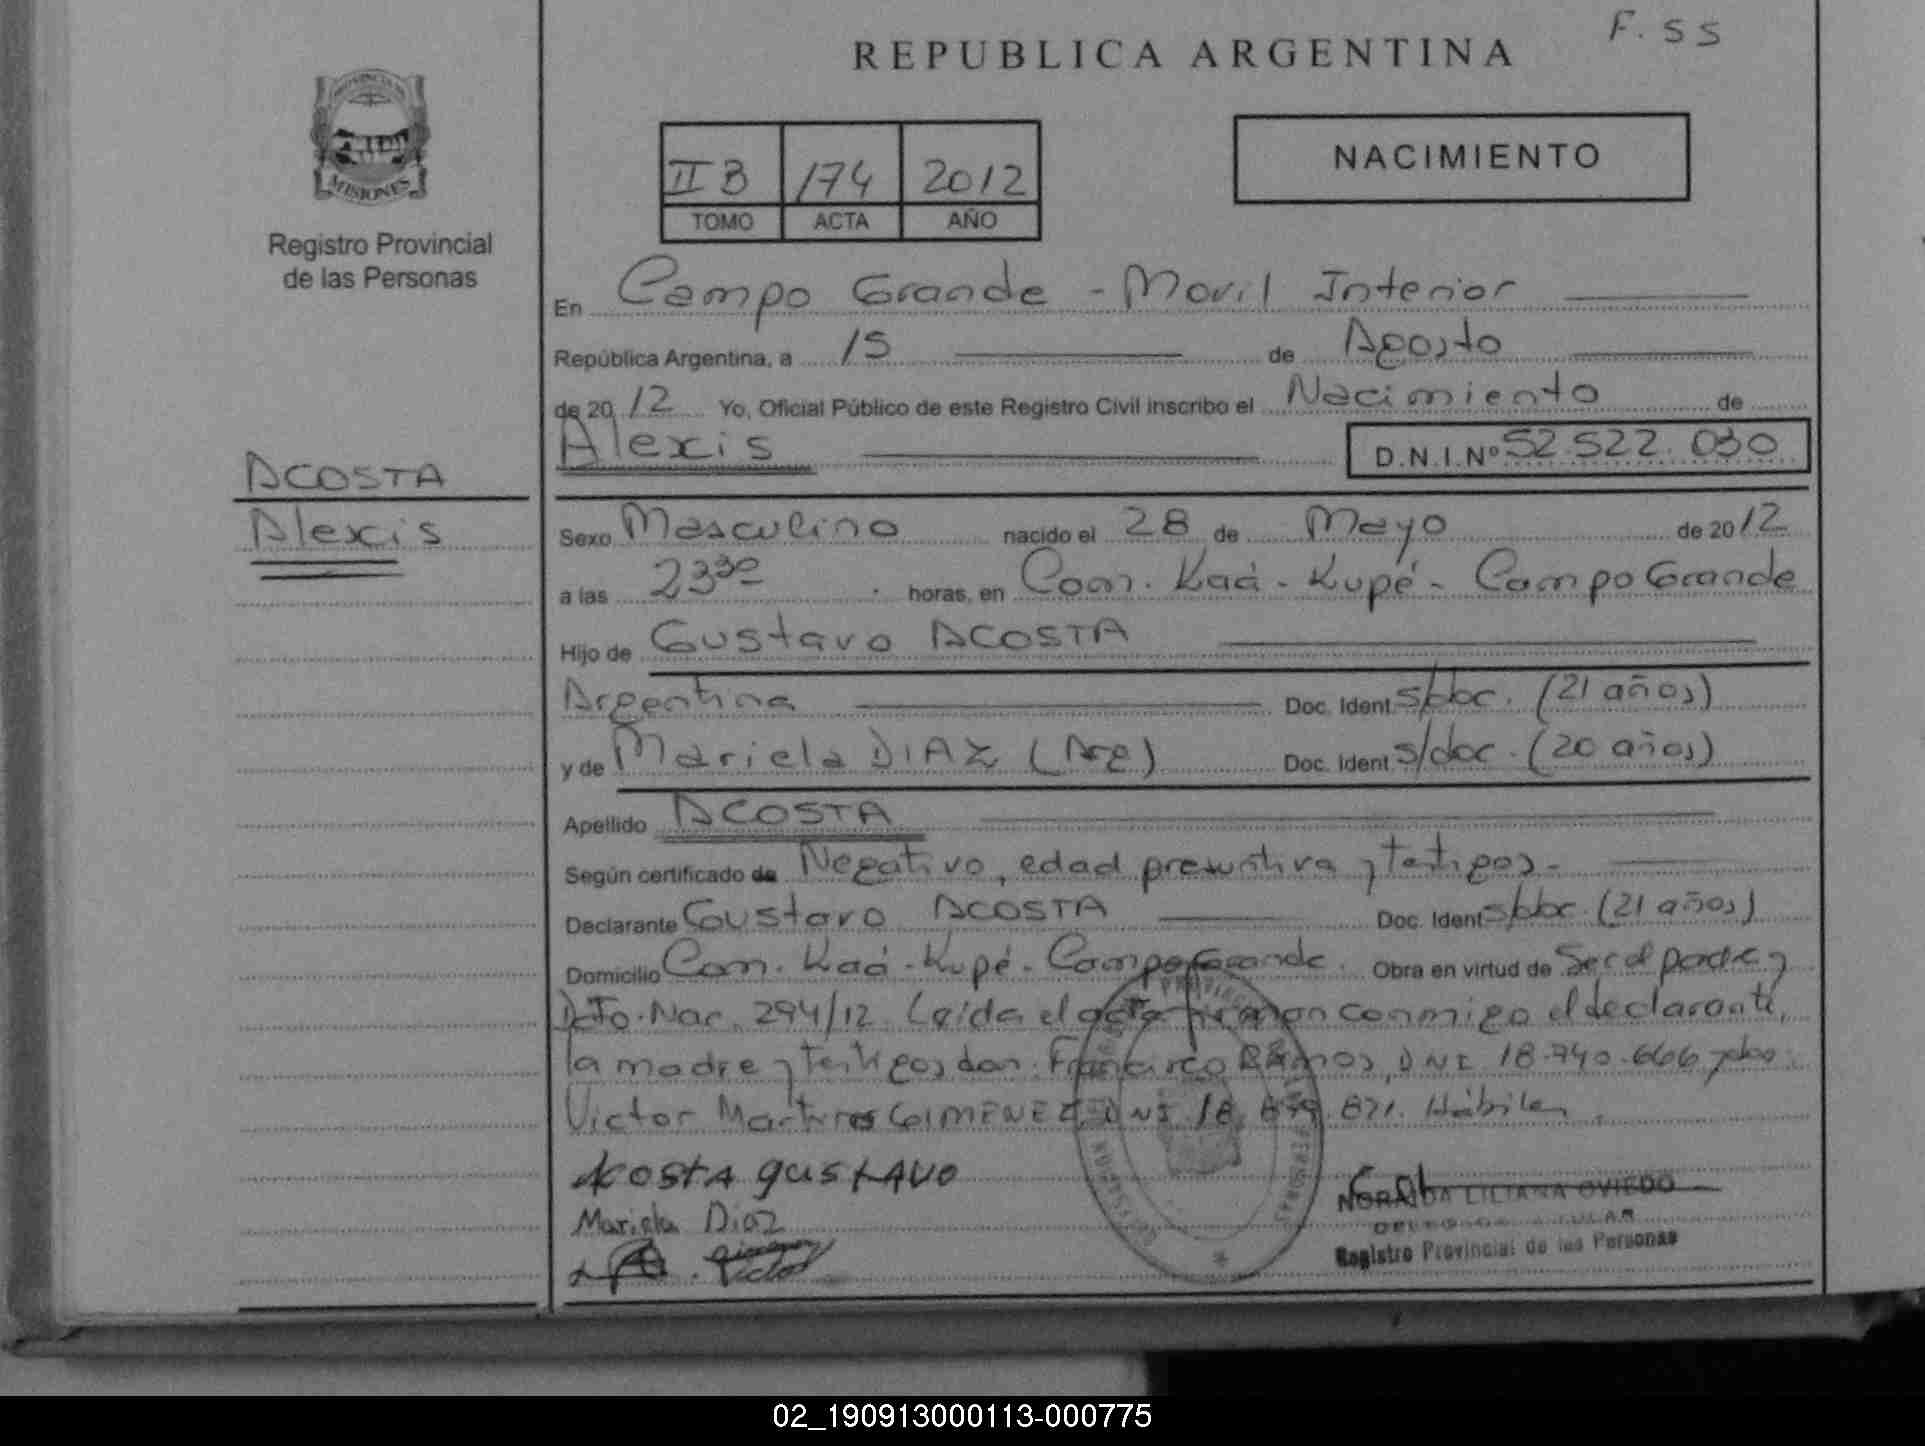 F. 55
REPUBLICA ARGENTINA
PROVINCIA DE
MISIONES
Registro Provincial
de las Personas
II B 174 2012
TOMO ACTA AÑO
NACIMIENTO
En Campo Grande - Movil Interior
República Argentina, a 15 de Agosto
de 2012 Yo, Oficial Público de este Registro Civil inscribo el Nacimiento de
Alexis D.N.I.Nº 52.522.030
ACOSTA
Alexis
Sexo Masculino nacido el 28 de Mayo de 2012
a las 23 30 horas, en Com. Kaá-Kupé- Campo Grande
Hijo de Gustavo ACOSTA
Argentina Doc. Ident. s/doc. (21 años)
y de Mariela DIAZ (Arg) Doc. Ident. s/doc. (20 años)
Apellido ACOSTA
Según certificado de Negativo, edad presuntiva y testigos.
Declarante Gustavo ACOSTA Doc. Ident. s/doc. (21 años)
Domicilio Com. Kaá-Kupé. Campo Grande. Obra en virtud de Ser el padre y
Dcto. Nac. 294/12. Leída el acta firman conmigo el declarante,
la madre y testigos don: Francisco RAMOS, DNI 18.740.666 y don
Victor Martires GIMENEZ, DNI 18.839.821. Hábiles.
AcostA gustAvo
Mariela Diaz
NORAIDA LILIANA OVIEDO
DELEGADA TITULAR
Registro Provincial de las Personas
02_190913000113-000775